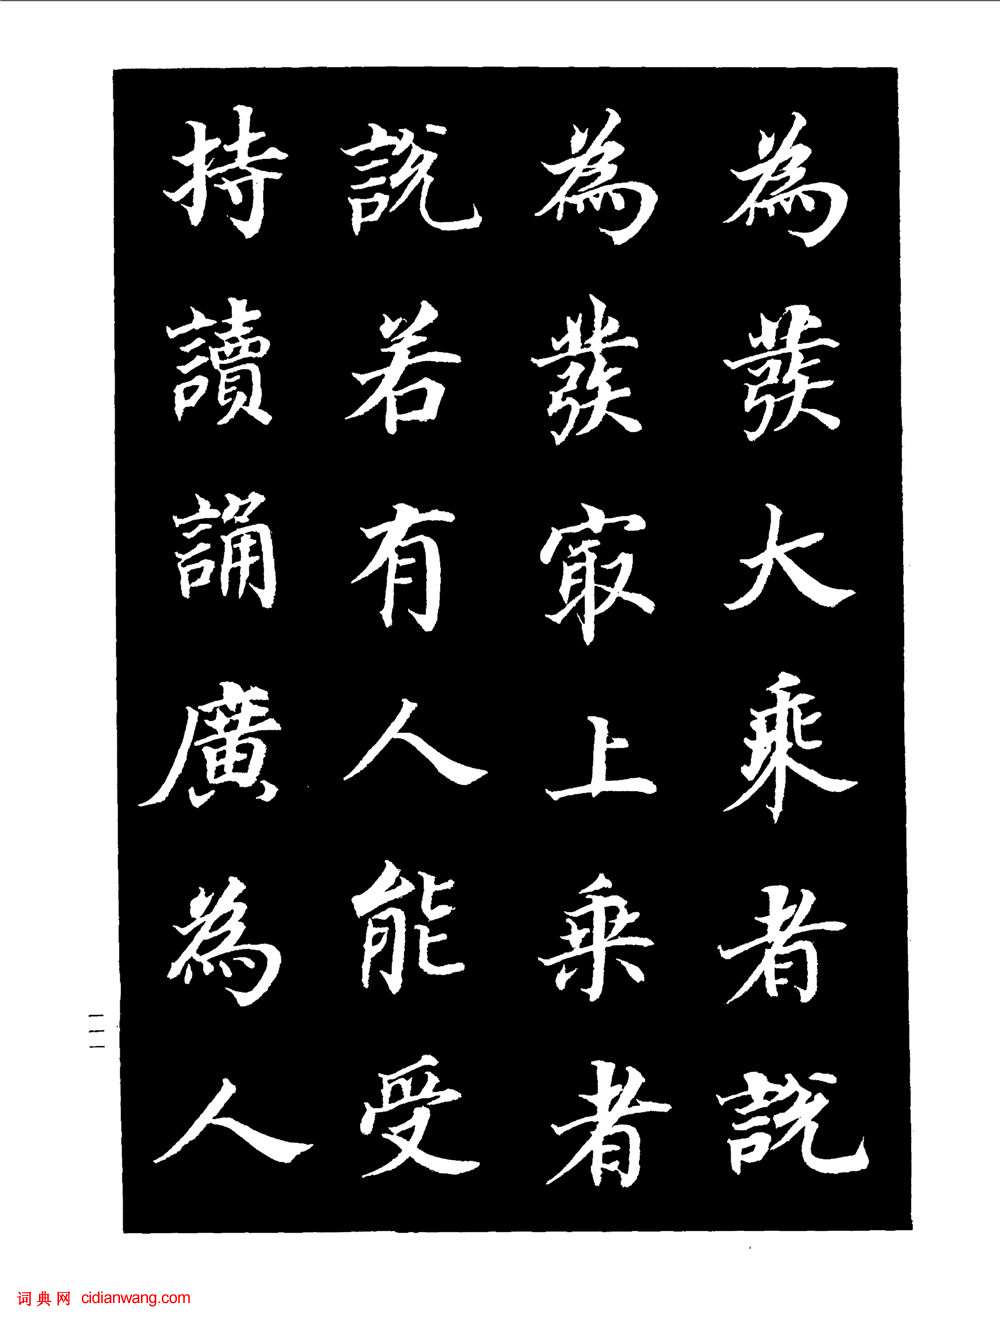 為發大乘者說
為發冣上乘者
說若有人能受
持讀誦廣為人
一一一
词典网 cidianwang.com